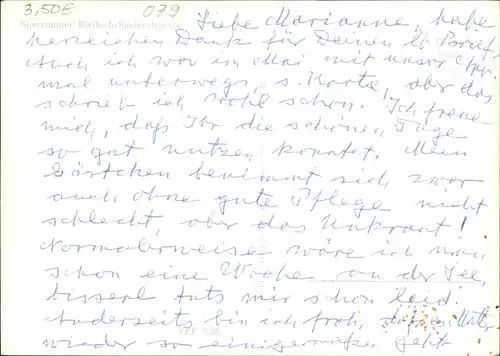 3,50€ 079
Liebe Marianne, habe
herzlichen Dank für Deinen lb. Brief.
Auch ich war im Mai mit unser
mal unterwegs, s. Karte, aber das
schrieb ich wohl schon. Ich freue
mich, daß Ihr die schönen Tage
so gut nutzen konntet. Mein
Gärtchen benimmt sich zwar
auch ohne gute Pflege nicht
schlecht, aber das Unkraut!
Normalerweise wäre ich nun
schon eine Woche an der See,
bisserl tuts mir schon leid.
Anderseits bin ich froh, daß es
wieder so einigermaßen geht